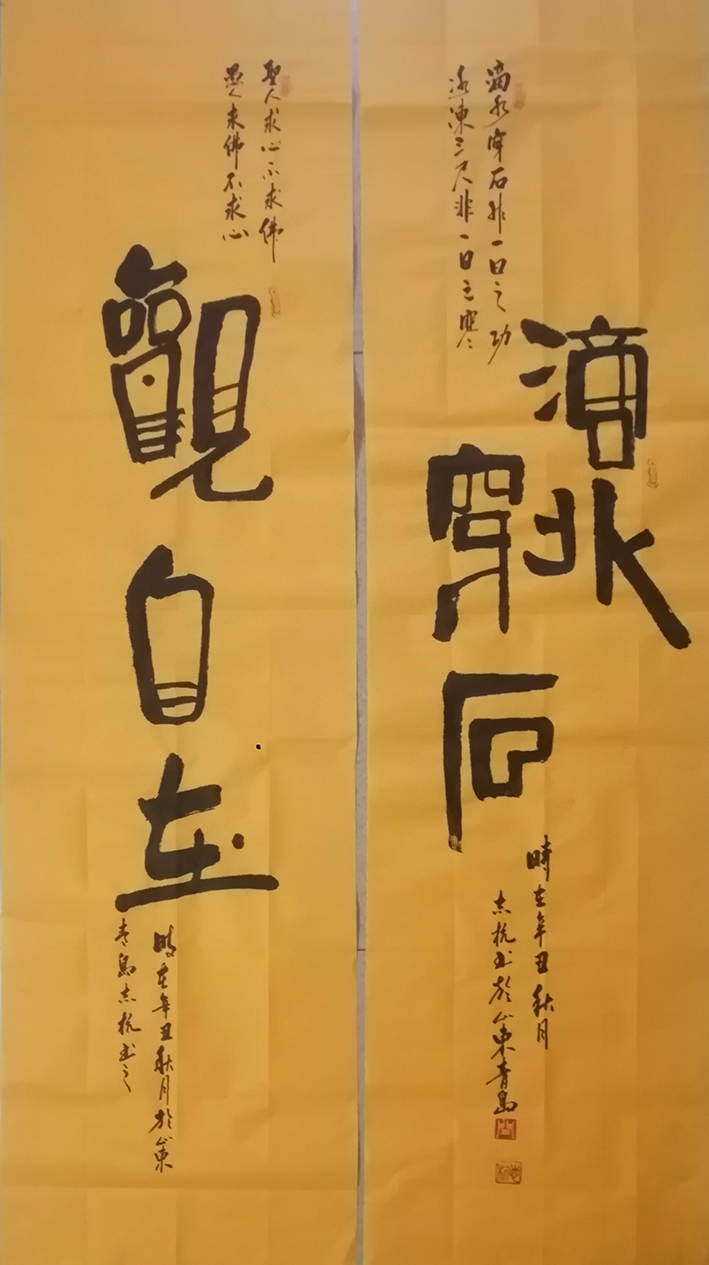 滴水穿石非一日之功
冰凍三尺非一日之寒
滴水
穿石
時在辛丑秋月
志杭書於山東青島
聖人求心不求佛
愚人求佛不求心
觀自在
時在辛丑秋月於山東
青島志杭書之